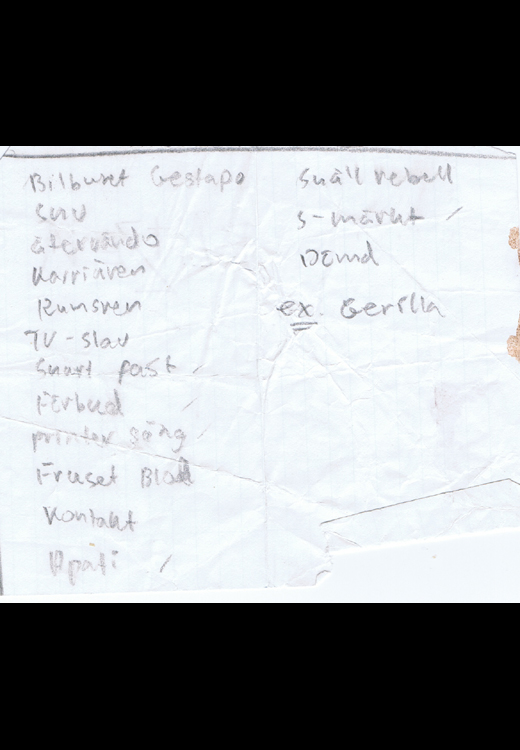 Bilburet Gestapo
SUV
återvändo
Karriären
Rumsren
TV-slav
Snart fast
Förbud
printer säng
Fruset Blod
Kontakt
Apati
Snäll rebell
S-märkt
Dömd
ex. Gerilla